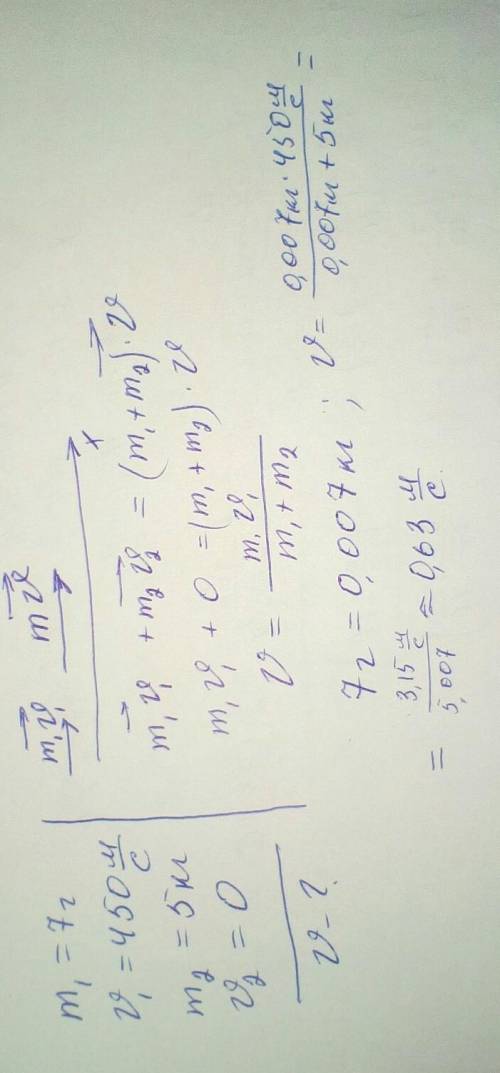 m₁ = 7г
υ₁ = 450 м/с
m₂ = 5 кг
υ₂ = 0
υ - ?
m₁υ₁ mυ
x
m₁υ₁ + m₂υ₂ = (m₁ + m₂) · υ
m₁υ₁ + 0 = (m₁ + m₂) · υ
υ = m₁υ₁ / m₁ + m₂
7г = 0,007 кг ; υ = 0,007кг · 450 м/с / 0,007кг + 5кг =
= 3,15 м/с / 5,007 ≈ 0,63 м/с